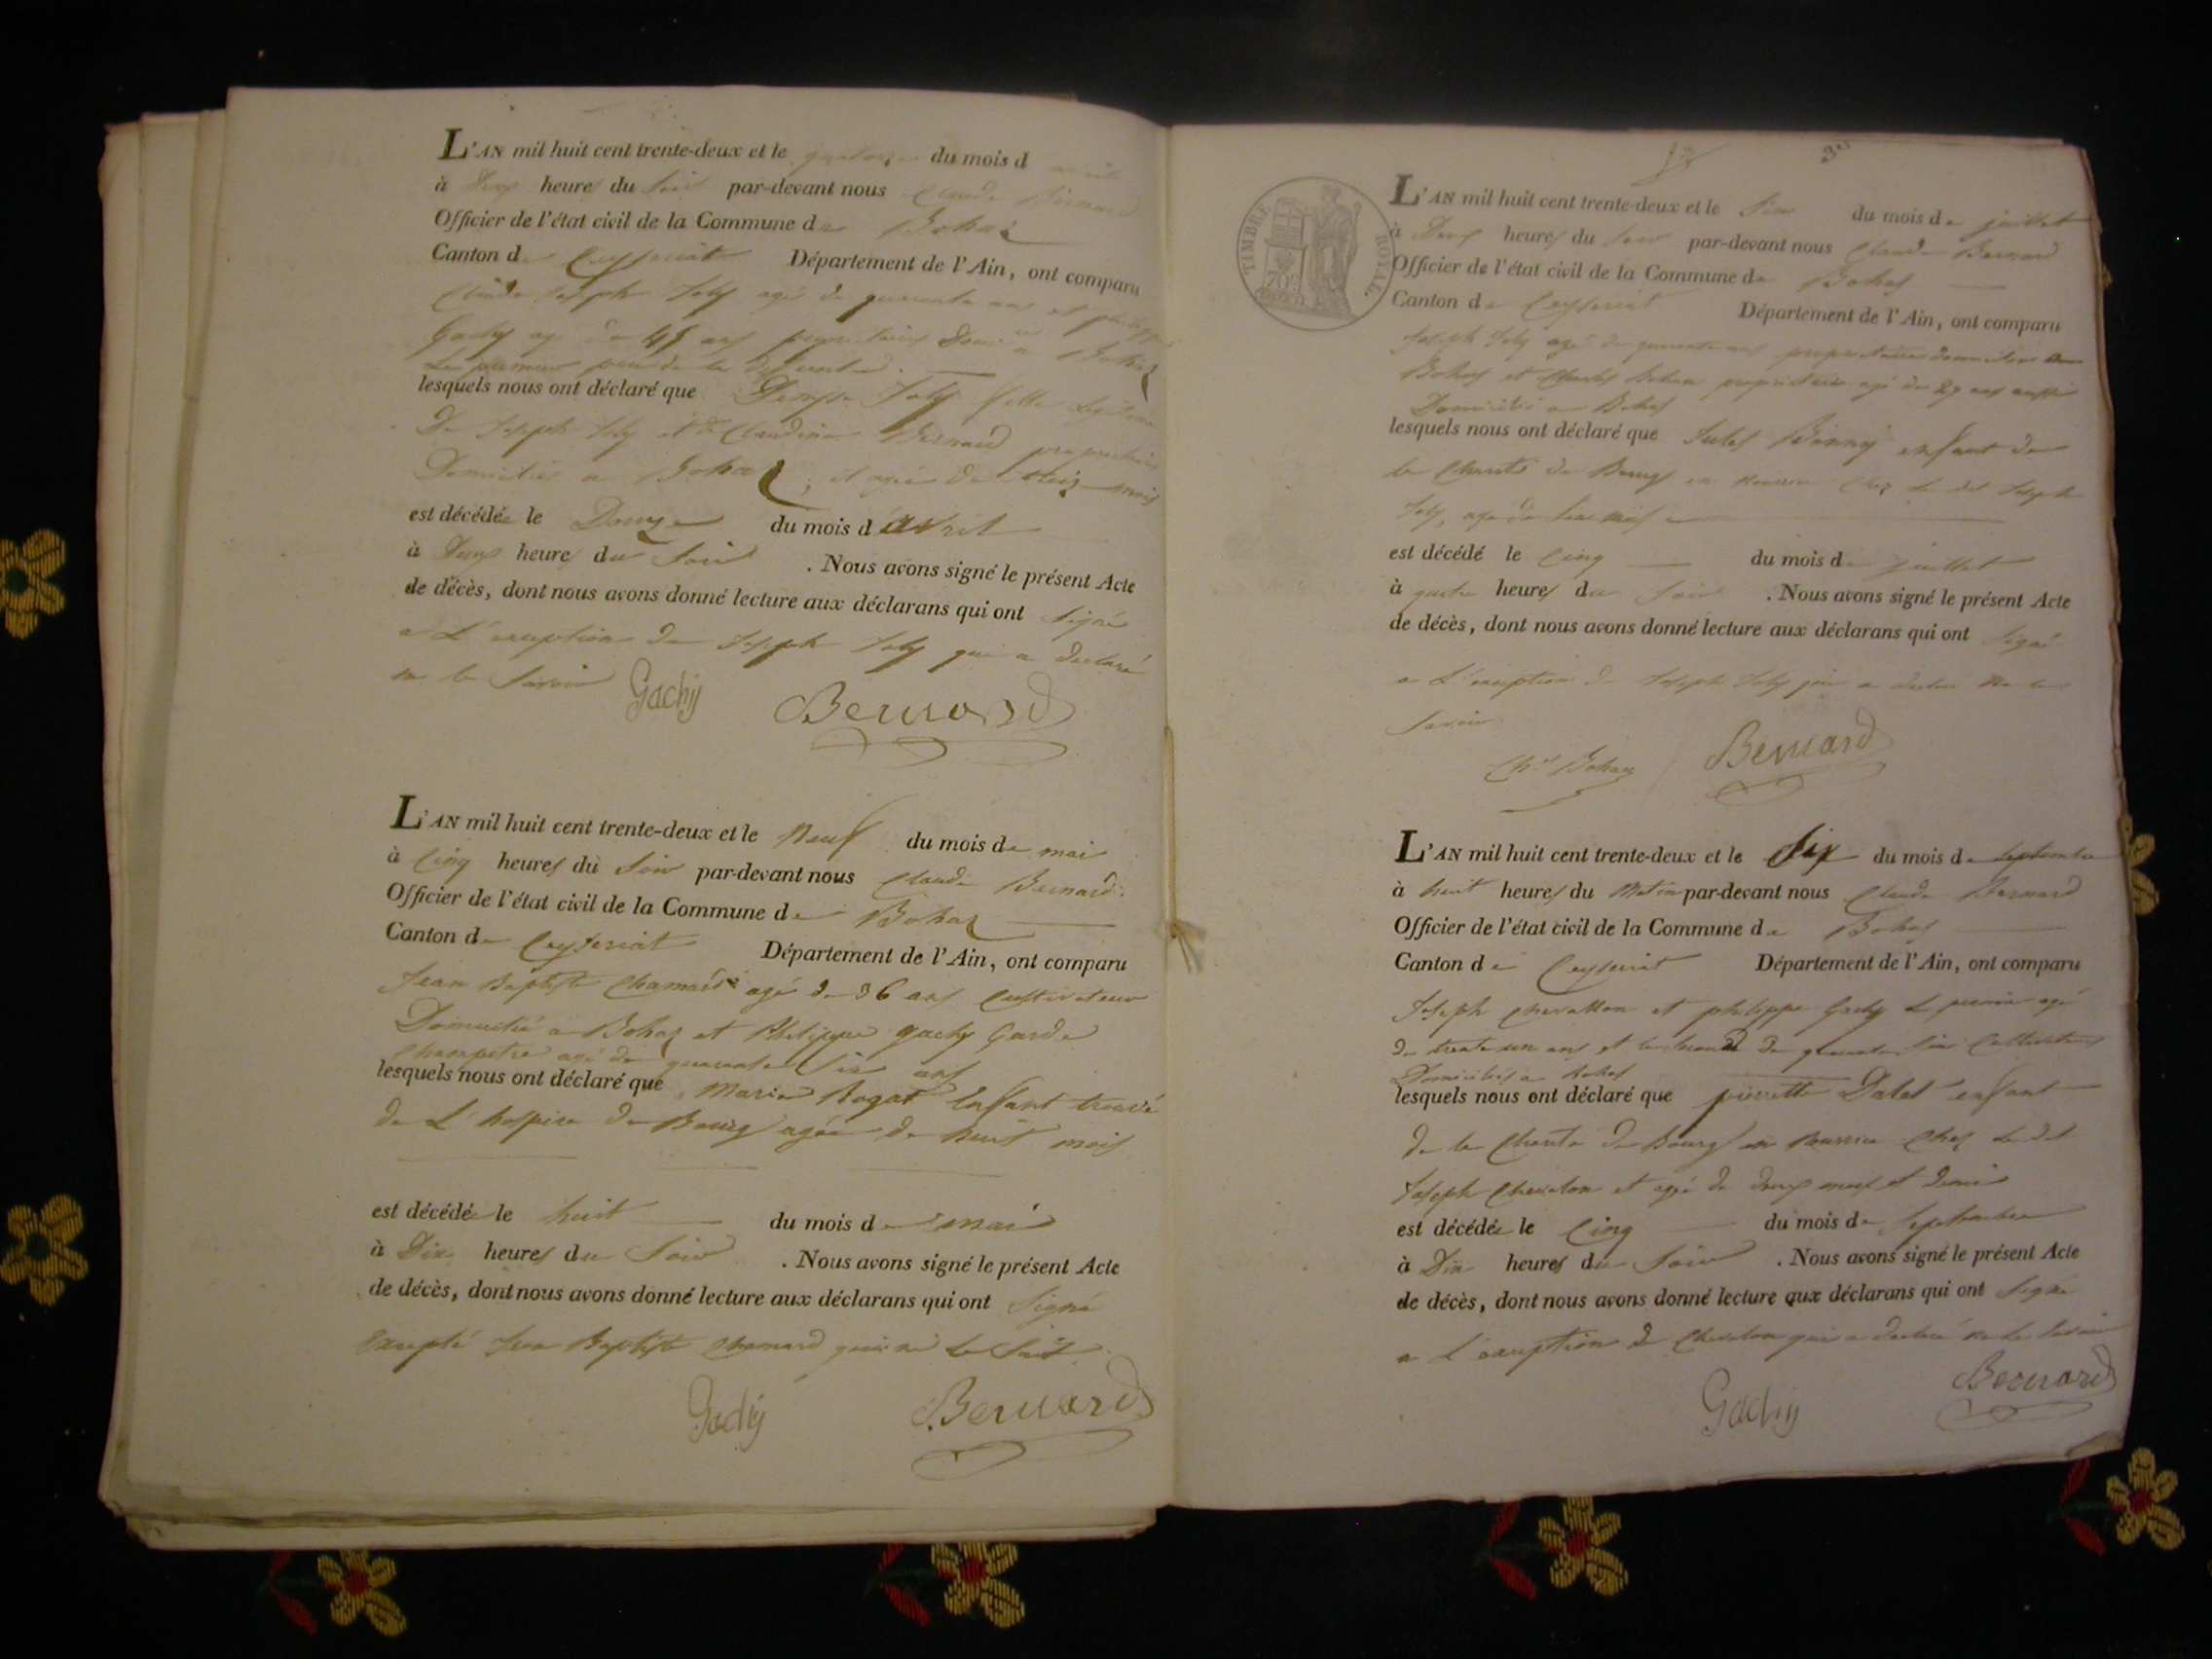 L'AN mil huit cent trente-deux et le quatorze du mois d avril
à Deux heures du Soir par-devant nous Claude Bernard
Officier de l'état civil de la Commune de Bohas
Canton de Ceyseriat Département de l'Ain, ont comparu
Claude Joseph Joly agé de quarante ans et philippe
Gachy agé de 45 ans proprietaires Dom. a Bohas
Le premier pere de la
lesquels nous ont déclaré que Joly fille Legitime
De Joseph Joly et de Claudine Bernard proprietaires
Domiciliés a Bohas, et agée de trois mois
est décédée le Douze du mois d'avril
à Deux heures du Soir . Nous avons signé le présent Acte
de décès, dont nous avons donné lecture aux déclarans qui ont Signé
a L'exception de Joseph Joly qui a declaré
ne le Savoir Gachy Bernard
L'AN mil huit cent trente-deux et le Neuf du mois de mai
à Cinq heures du Soir par-devant nous Claude Bernard
Officier de l'état civil de la Commune de Bohas
Canton de Ceyseriat Département de l'Ain, ont comparu
Jean Baptiste Chamard agé de 36 ans Cultivateur
Domicilié a Bohas et Philippe gachy Garde
Champetre agé de quarante Six ans
lesquels nous ont déclaré que Marie Rogat Enfant trouvé
de L'hospice de Bourg agée de huit mois
est décédée le huit du mois de mai
à Dix heures du Soir . Nous avons signé le présent Acte
de décès, dont nous avons donné lecture aux déclarans qui ont Signé
Excepté Jean Baptiste Chamard qui ne Le Sait
Gachy Bernard
3
TIMBRE ROYAL
70
L'AN mil huit cent trente-deux et le Six du mois de juillet
à Deux heures du Soir par-devant nous Claude Bernard
Officier de l'état civil de la Commune de Bohas
Canton de Ceyseriat Département de l'Ain, ont comparu
Joseph Joly agé de quarante ans proprietaire domicilié a
Bohas et Charles Bohan proprietaire agé de 29 ans aussi
Domicilié a Bohas
lesquels nous ont déclaré que Jules Binny enfant de
la Charité de Bourg en Nourrice chez Le dit Joseph
Joly, agé de Six mois
est décédé le Cinq du mois de juillet
à quatre heures du Soir . Nous avons signé le présent Acte
de décès, dont nous avons donné lecture aux déclarans qui ont Signé
a L'exception de Joseph Joly qui a declaré Ne le
Savoir
Ch.s Bohan Bernard
L'AN mil huit cent trente-deux et le Six du mois de Septembre
à huit heures du Matin par-devant nous Claude Bernard
Officier de l'état civil de la Commune de Bohas
Canton de Ceyseriat Département de l'Ain, ont comparu
Joseph Chevallon et philippe Gachy Le premier agé
de trente un ans et le second de quarante Six Cultivateurs
Domiciliés a Bohas
lesquels nous ont déclaré que pierrette Dalet enfant
de la Charité de Bourg en Nourrice Chez Le dit
Joseph Chevalon et agé de deux mois et demi
est décédée le Cinq du mois de Septembre
à Dix heures du Soir . Nous avons signé le présent Acte
de décès, dont nous avons donné lecture aux déclarans qui ont Signé
a L'exception de Chevalon qui a declaré ne Le Savoir
Gachy Bernard